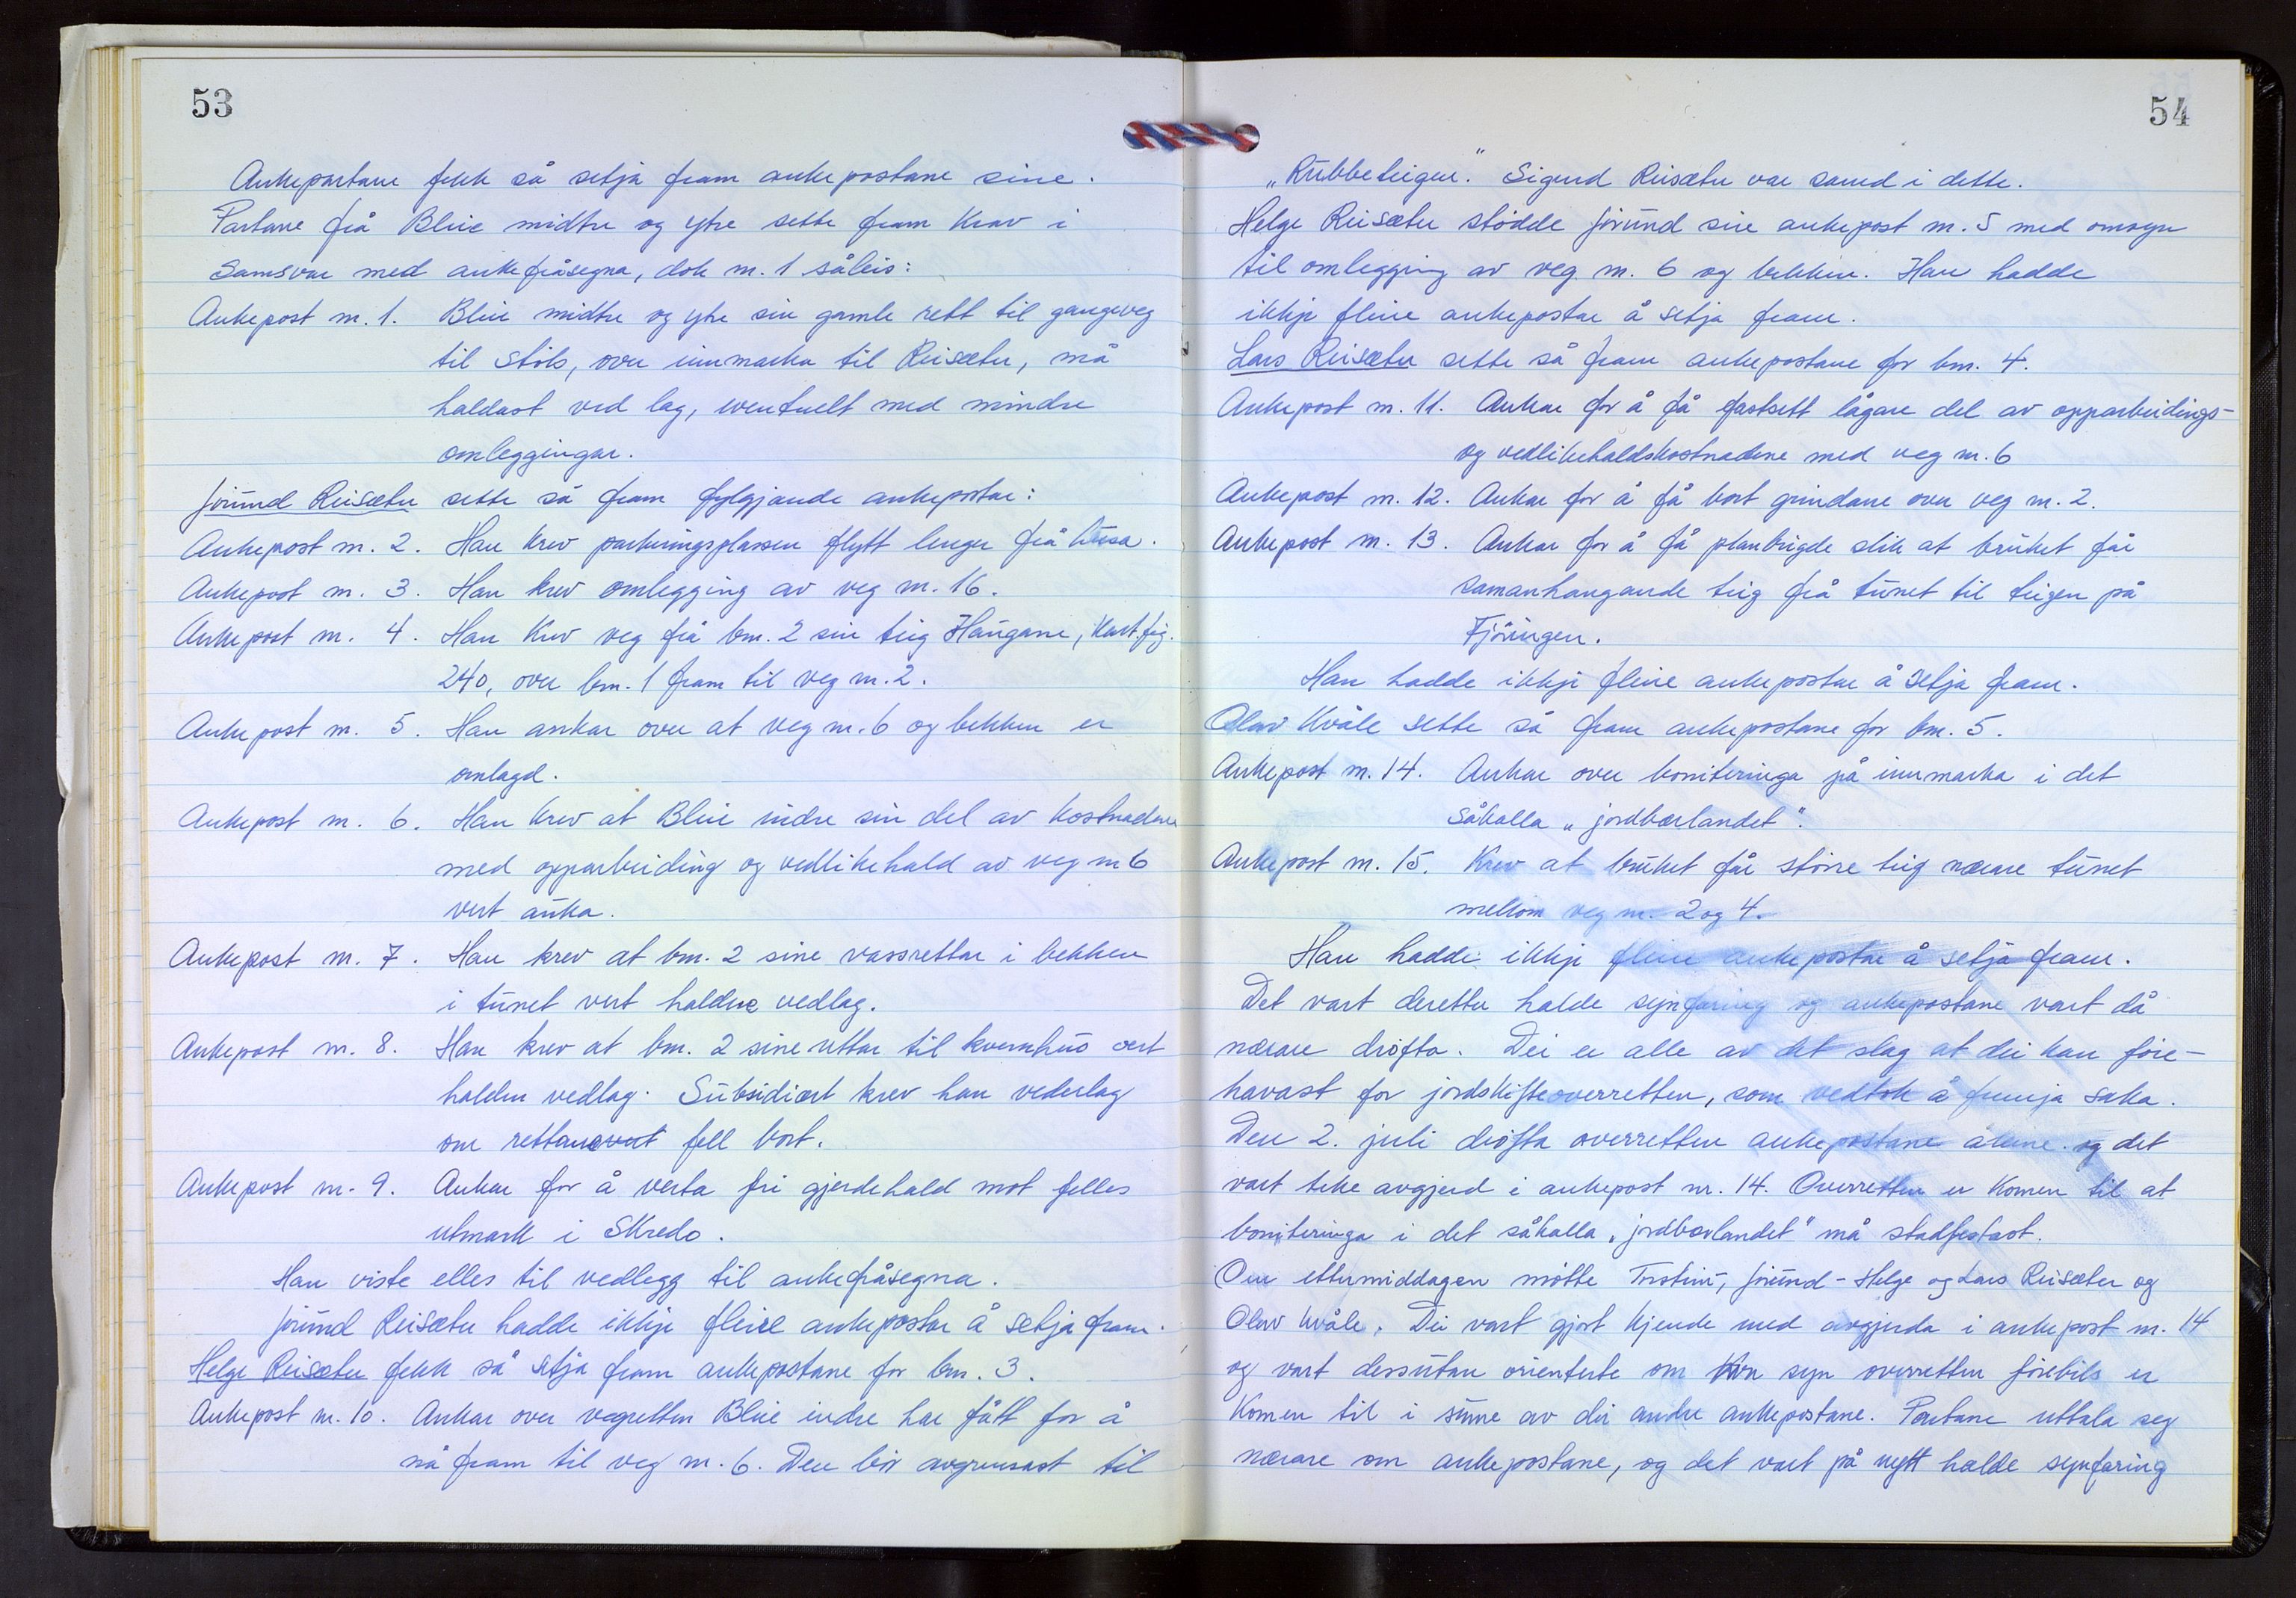 53
Ankepartane fekk så setja fram ankepostane sine.
Partane frå Blie midtre og ytre sette fram krav i
samsvar med ankefråsegna, dok nr. 1 såleis:
Ankepost nr. 1. Blie midtre og ytre sin gamle rett til gangveg
til støls, over innmarka til Reisæter, må
haldast ved lag, eventuelt med mindre
omleggingar.
Jörund Reisæter sette så fram fylgjande ankepostar:
Ankepost nr. 2. Han krev parkeringsplassen flytt lenger frå husa.
Ankepost nr. 3. Han krev omlegging av veg nr. 16.
Ankepost nr. 4. Han krev veg frå bnr. 2 sin teig Haugane, kart fig.
240, over bnr. 1 fram til veg nr. 2.
Ankepost nr. 5. Han ankar over at veg nr. 6 og bekken er
omlagd.
Ankepost nr. 6. Han krev at Blie indre sin del av kostnadene
med opparbeiding og vedlikehald av veg nr 6
vert auka.
Ankepost nr. 7. Han krev at bnr. 2 sine vassrettar i bekken
i tunet vert haldne vedlag.
Ankepost nr. 8. Han krev at bnr. 2 sine rettar til kvernhus vert
halden vedlag. Subsidiært krev han vederlag
om rettane fell bort.
Ankepost nr. 9. Ankar for å verta fri gjerdehald mot felles
utmark i Skredo.
Han viste elles til vedlegg til ankefråsegna.
Jörund Reisæter hadde ikkje fleire ankepostar å setja fram.
Helge Reisæter fekk så setja fram ankepostane for bnr. 3.
Ankepost nr. 10. Ankar over vegretten Blie indre har fått for å
nå fram til veg nr. 6. Den bör avgrensast til
54
„Rubbeteigen". Sigurd Reisæter var samd i dette.
Helge Reisæter stödde Jörund sin ankepost nr. 5 med omsyn
til omlegging av veg nr. 6 og bekken. Han hadde
ikkje fleire ankepostar å setja fram.
Lars Reisæter sette så fram ankepostane for bnr. 4.
Ankepost nr. 11. Ankar for å få fastsett lågare del av opparbeidings-
og vedlikehaldskostnadene med veg nr. 6
Ankepost nr. 12. Ankar for å få bort grindane over veg nr. 2.
Ankepost nr. 13. Ankar for å få planbrigde slik at bruket får
samanhangande teig frå tunet til teigen på
Fjöringen.
Han hadde ikkje fleire ankepostar å setja fram.
Olav Kvåle sette så fram ankepostane for bnr. 5.
Ankepost nr. 14. Ankar over boniteringa på innmarka i det
såkalla „jordbærlandet".
Ankepost nr. 15. Krev at bruket får större teig nærare tunet
mellom veg nr. 2 og 4.
Han hadde ikkje fleire ankepostar å setja fram.
Det vart deretter halde synfaring og ankepostane vart då
nærare dröfta. Dei er alle av det slag at dei kan före-
havast for jordskifteoverretten, som vedtok å fremja saka.
Den 2. juli dröfta overretten ankepostane åleine og det
vart teke avgjerd i ankepost nr. 14. Overretten er komen til at
boniteringa i det såkalla „jordbærlandet" må stadfestast.
Om ettermiddagen mötte Torstein, Jörund - Helge og Lars Reisæter og
Olav Kvåle. Dei vart gjort kjende med avgjerda i ankepost nr. 14
og vart dessutan orienterte om kva syn overretten förebils er
komen til i sume av dei andre ankepostane. Partane uttala seg
nærare om ankepostane, og det vart på nytt halde synfaring